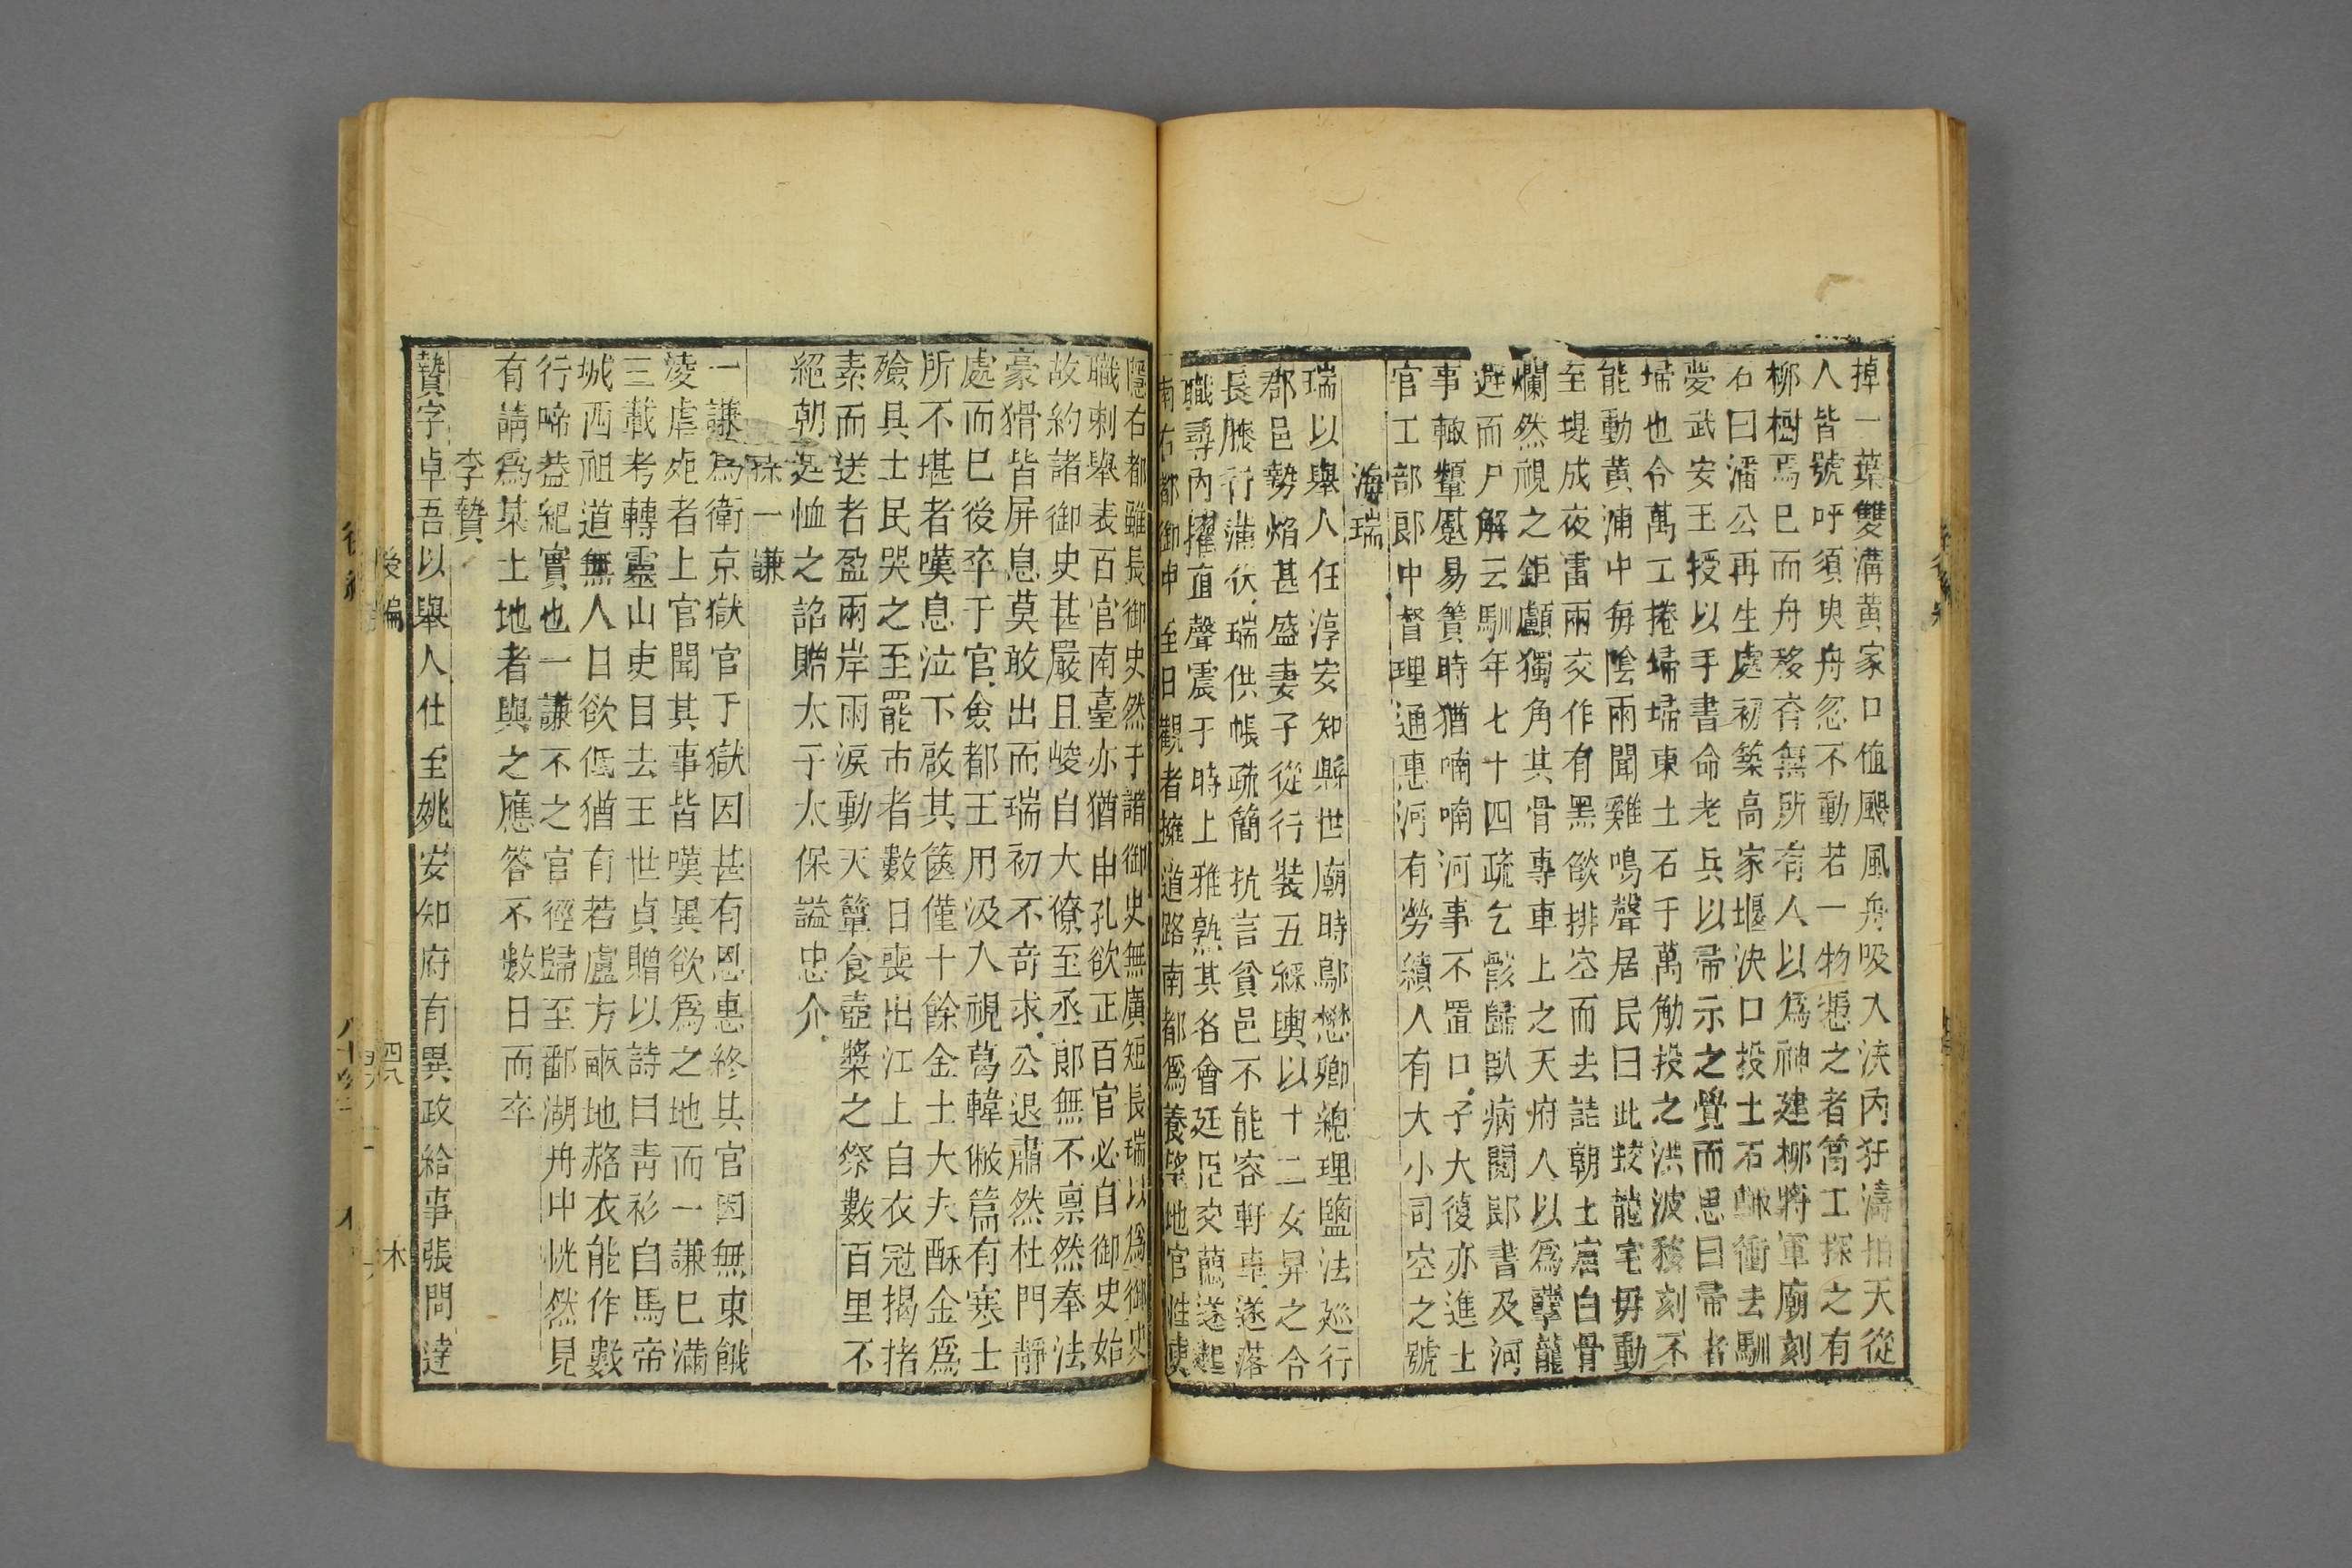 掉一葉雙溝黃家口値颶風舟吸入決內狂濤拍天從
人皆號呼須臾舟忽不動若一物憑之者篙工探之有
柳樹焉巳而舟移杳無所有人以爲神建柳將軍廟刻
石曰潘公再生處初築高家堰決口投土石輙衝去馴
夢武安王授以手書命老兵以帚示之覺而思曰帚者
埽也令萬工捲埽埽東土石于萬觔投之洪波移刻不
能動黃浦中每陰雨聞雞鳴聲居民曰此蛟龍宅毋動
至堤成夜雷雨交作有黑燄排空而去詰朝土窟白骨
爛然視之鉅顱獨角其骨專車上之天府人以爲孽龍
避而尸解云馴年七十四疏乞骸歸臥病閱郵書及河
事輙顰蹙易簀時猶喃喃河事不置口子大復亦進士
官工部郎中督理通惠河有勞績人有大小司空之號
海瑞
瑞以舉人任淳安知縣世廟時鄢懋卿總理鹽法廵行
郡邑勢焰甚盛妻子從行裝五綵輿以十二女舁之令
長膝行蒲伏瑞供帳疏簡抗言貧邑不能容軒車遂落
職尋內擢直聲震于時上雅熟其名會廷臣交薦遂起
南右都御史 至日觀者擁道路南都爲養望地官惟吏
隱右都雖長御史然于諸御史無廣短長瑞以爲御史
職刺舉表百官南臺亦猶由孔欲正百官必自御史始
故約諸御史甚嚴且峻自大僚至丞郎無不禀然奉法
豪猾皆屏息莫敢出而瑞初不苛求公退肅然杜門靜
處而巳後卒于官僉都王用汲入視葛幃敝篇有寒士
所不堪者嘆息泣下啟其篋僅十餘金士大夫酥金爲
殮具士民哭之至罷市者數日喪出江上自衣冠揭措
素而送者盈兩岸雨淚動天簞食壺槳之祭數百里不
絕朝廷恤之詔贈太子太保謚忠介
孫一謙
一謙爲衛京獄官于獄因甚有恩惠終其官因無東餓
淩虐死者上官聞其事皆嘆異欲爲之地而一謙巳滿
三載考轉靈山吏目去王世貞贈以詩曰靑衫白馬帝
城西祖道無人日欲低猶有若盧方畝地赭衣能作數
行啼葢紀實也一謙不之官徑歸至鄱湖舟中恍然見
有請爲某土地者與之應答不數日而卒
李贄
贄字卓吾以舉人仕至姚安知府有異政給事張問達
後編
四八
木